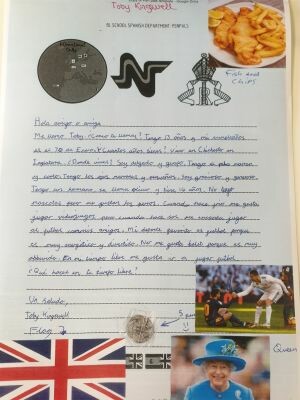 Toby Kingwell
SCHOOL SPANISH DEPARTMENT - PENPALS
Fish and
Chips
Hola amigo o amiga
Me llamo Toby ¿Cómo te llamas? Tengo 13 años y mi cumpleaños
es el 30 en Enero ¿Cuántos años tienes? Vivo en
Inglaterra ¿Dónde vives? Soy delgado y guapo. Tengo el pelo marrón
y corto. Tengo los ojos marrones y Soy gracioso y
Tengo un hermano, se llama y tiene 16 años. No tengo
mascotas pero me gustan los perros. Cuando hace me gusta
jugar videojuegos pero cuando hace sol me gusta jugar
al fútbol con mis amigos. Mi deporte favorito es fútbol porque
es muy energético y divertido. No me gusta porque es muy
aburrido. En mi tiempo libre me gusta ir a jugar fútbol
¿Qué haces en tu tiempo libre?
Un saludo,
Toby Kingwell
Flag
5
Queen